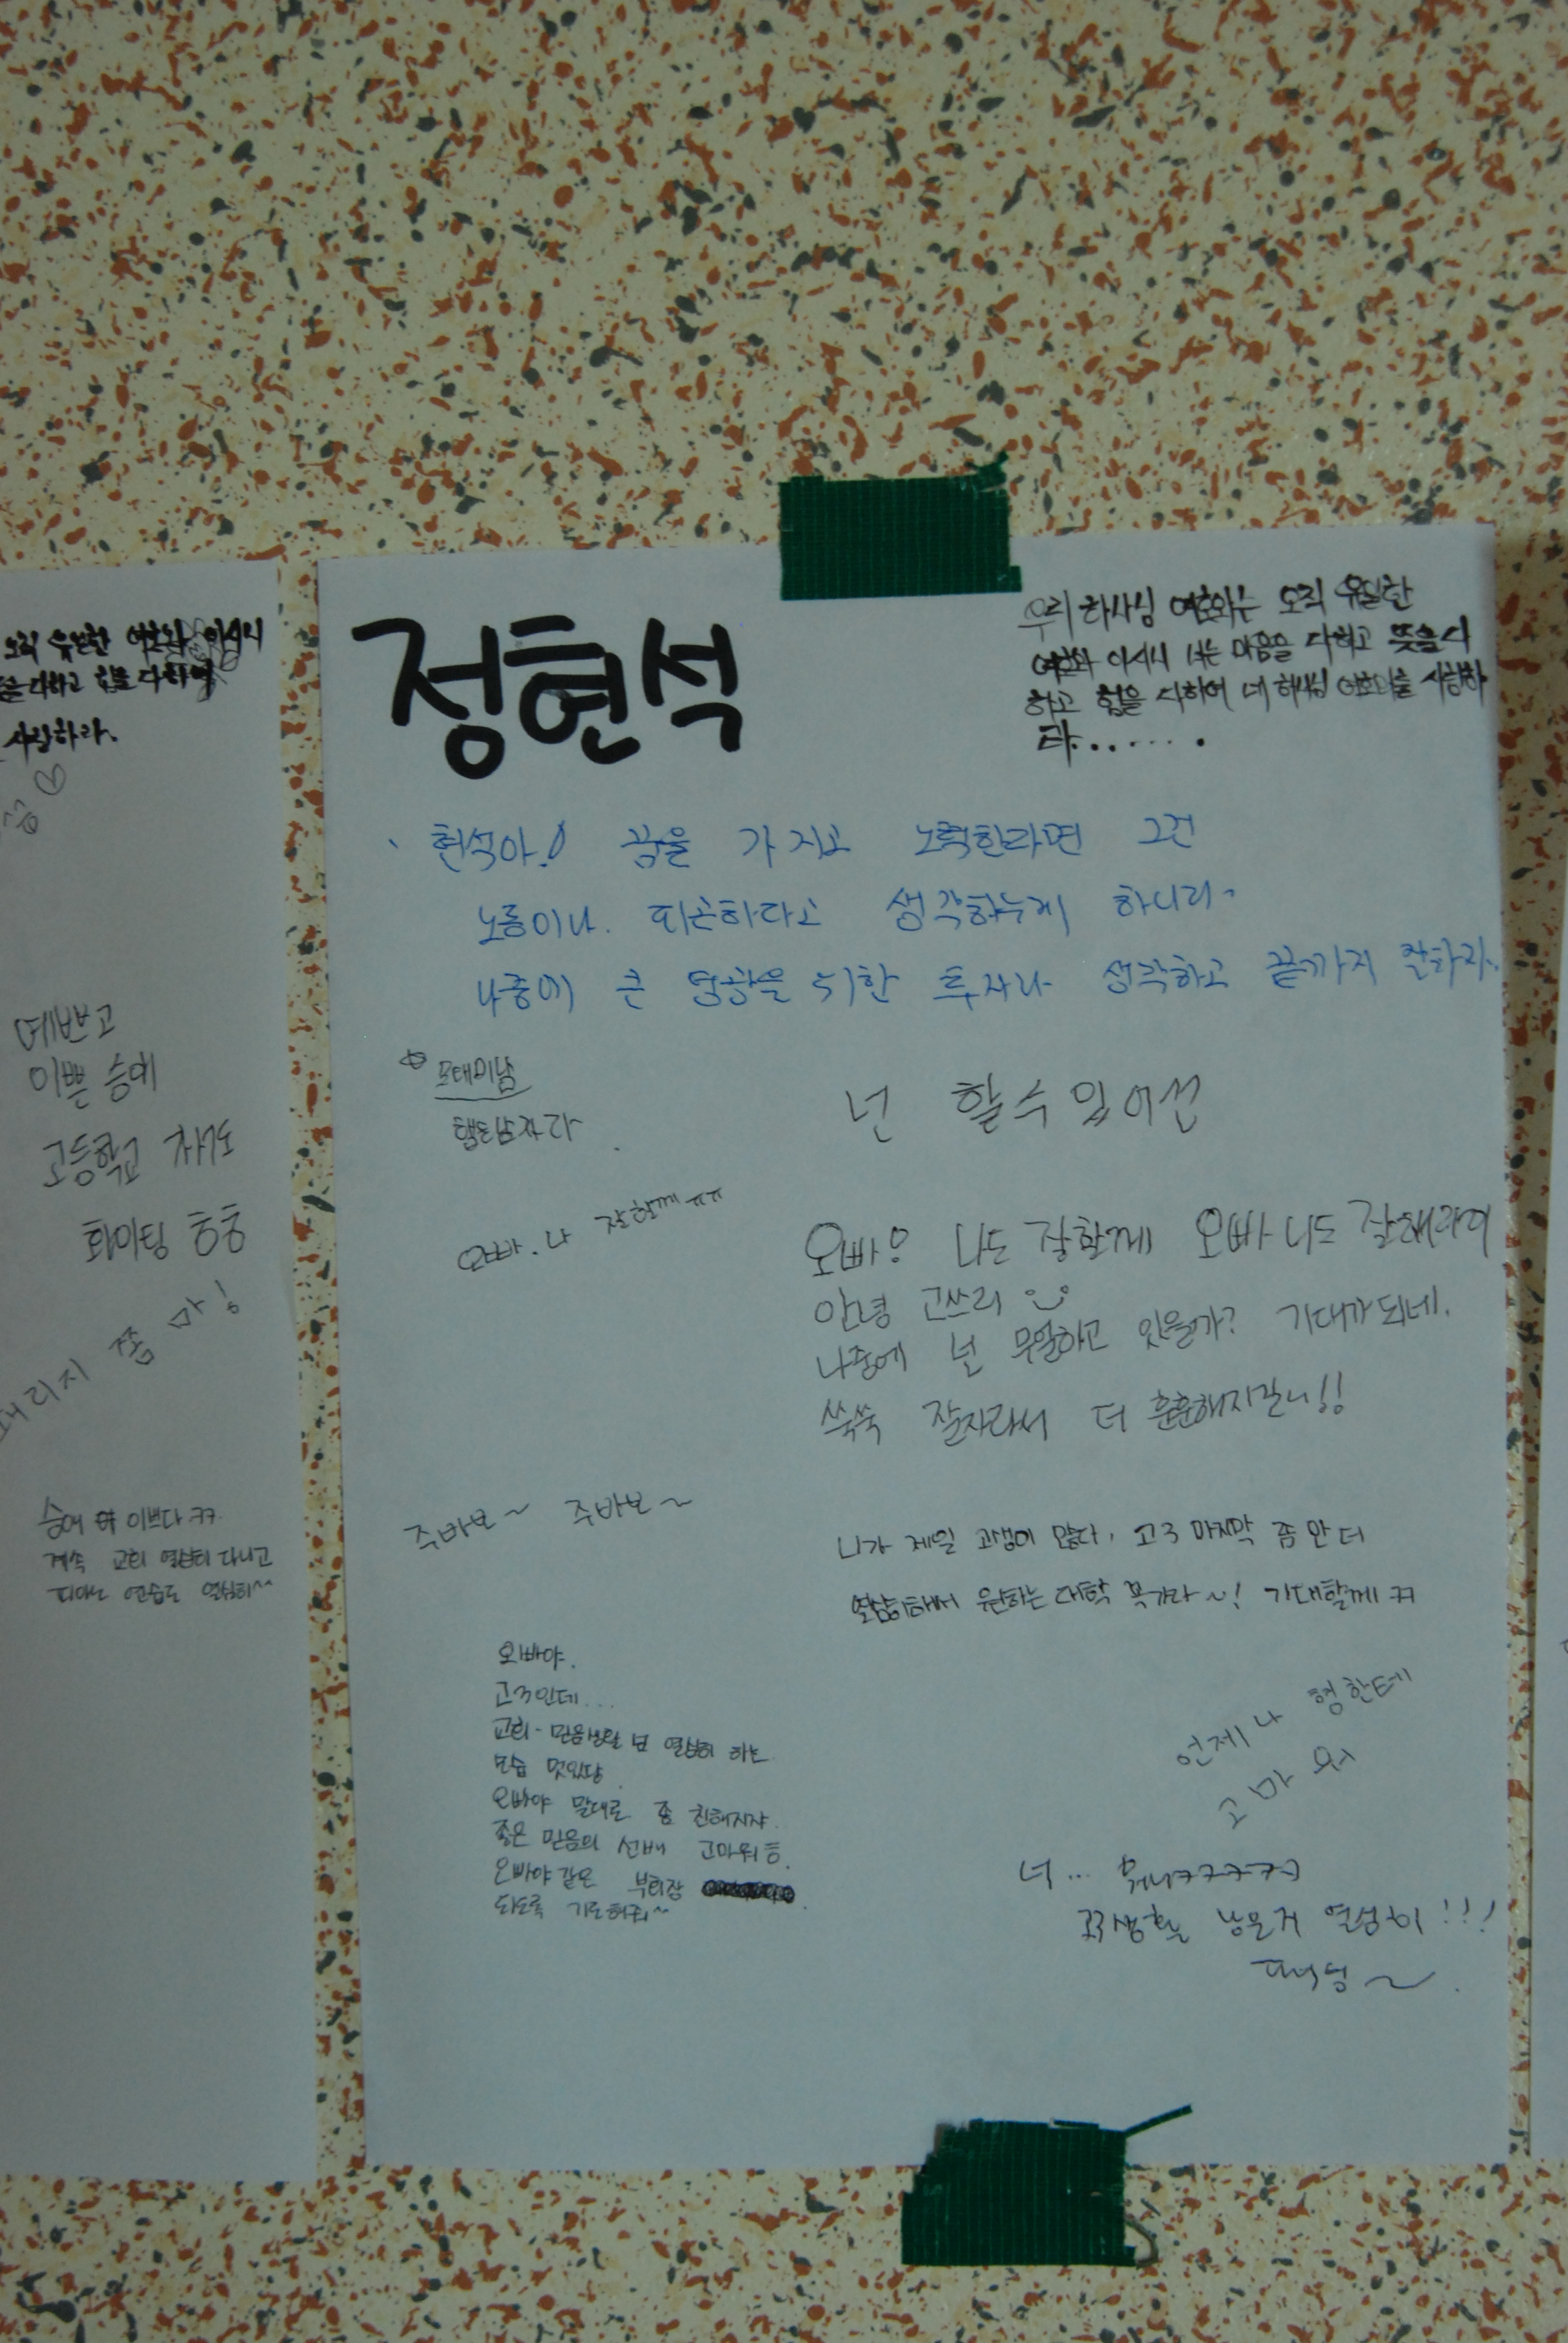 오직 유일한 여호와 이시니
다하고 힘을 다하여
사랑하라.
예쁘고
이쁜 승예
고등학교 차가도
화이팅 흥흥
때리지 쫌 마!
승예 이쁘다 ㅋㅋ
계속 교회 열심히 다니고
피아노 연습도 열심히~~
정현석
우리 하나님 여호와는 오직 유일한
여호와 이시니 너는 마음을 다하고 뜻을 다
하고 힘을 다하여 네 하나님 여호와를 사랑하
라.......
현석아! 꿈을 가지고 노력한라면 그건
노름이나. 피곤하다고 생각하는게 하니라
나중에 큰 영광을 위한 투자라 생각하고 끝까지 잘하자.
모태미남
넌 할수있어선
오빠. 나 잘할께ㅠㅠ
오빠! 나도 잘할께 오빠 니도 잘해라이
안녕 고쓰리
나중에 넌 무얼하고 있을까? 기대가 되네.
쑥쑥 잘자라서 더 훈훈해지길!!
주바보~ 주바보~
니가 제일 고생이 많다. 고3 마지막 쫌만 더
열심히해서 원하는 대학 꼭가라~! 기대할께 ㅋㅋ
오빠야.
고3인데...
교회·믿음생활 넘 열심히 하는
모습 멋있당
오빠야 말대로 좀 친해지자.
좋은 믿음의 선배 고마워용.
오빠야 같은 부회장
되도록 기도해줘~
언제나 형한테
고마워
너... 뭐니ㅋㅋㅋㅋㅋ
고3생활 남은거 열심히!!!